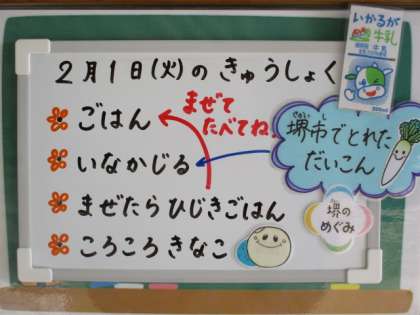 2月1日(火)の きゅうしょく
ごはん
まぜて
たべてね
いなかじる
まぜたら ひじきごはん
ころころ きなこ
いかるが
牛乳
さかいし
堺市でとれた
だいこん
堺の
めぐみ